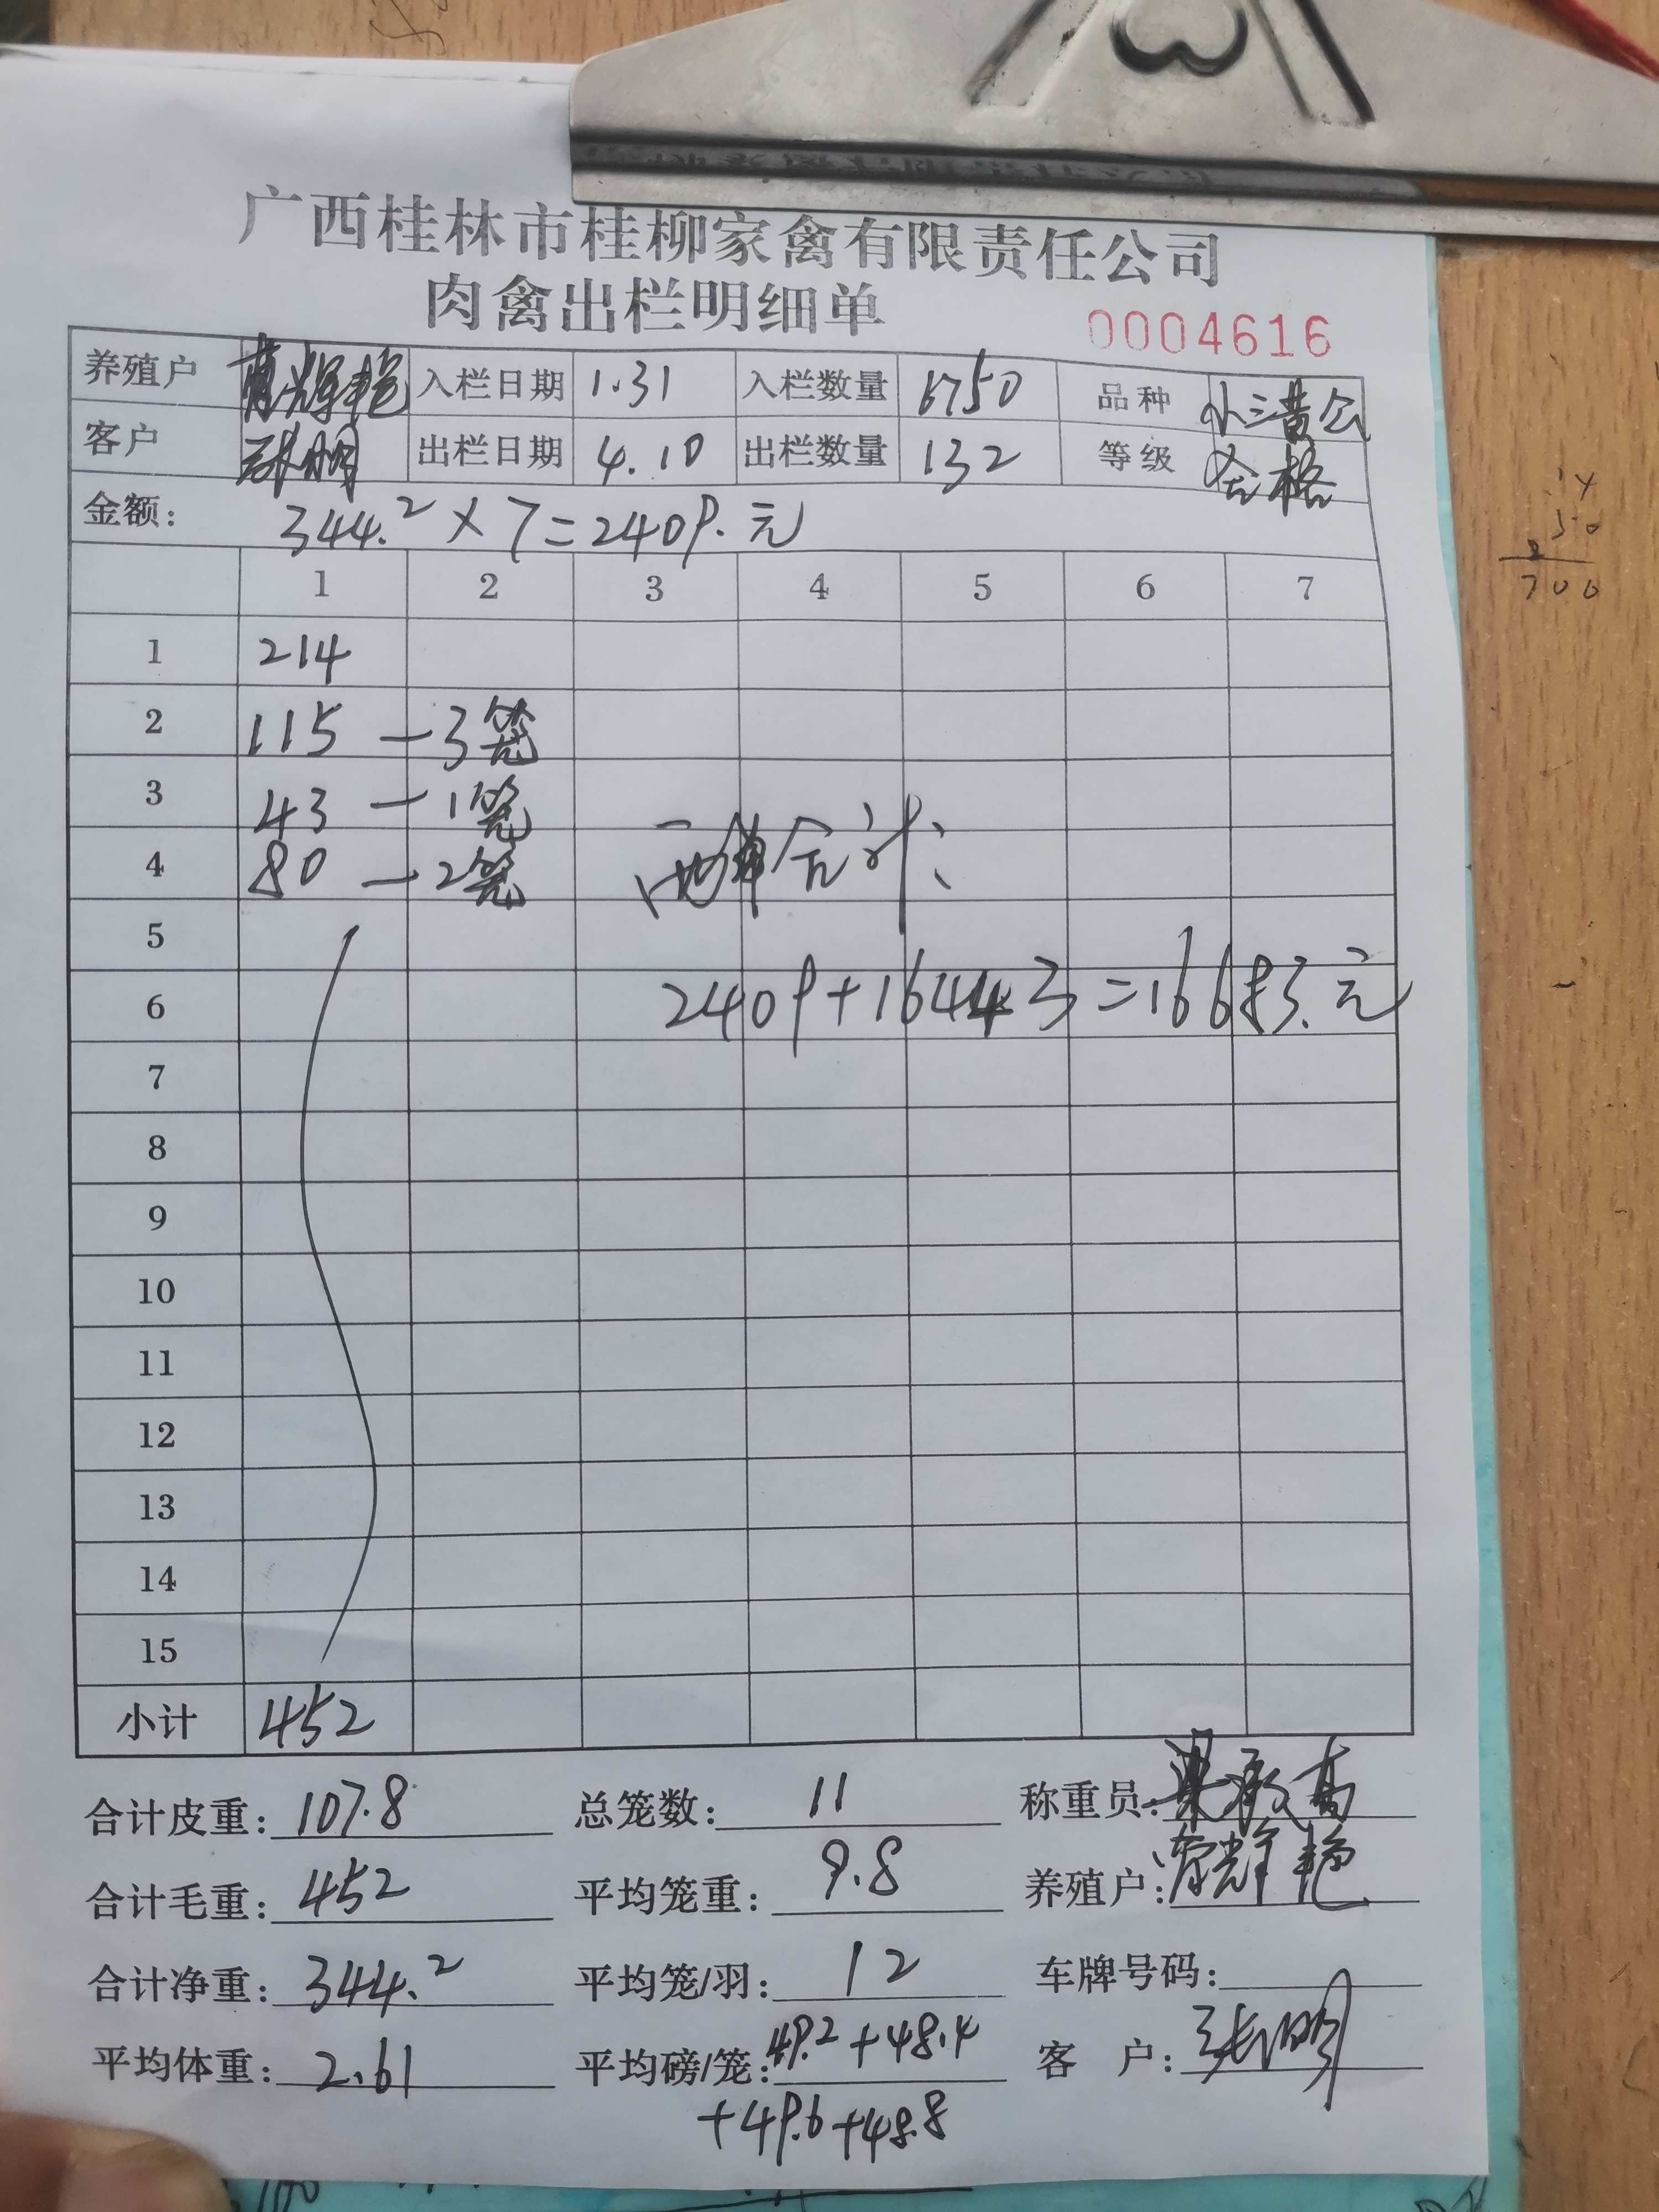 广西桂林市桂柳家禽有限责任公司
肉禽出栏明细单
0004616
养殖户 入栏日期 1.31 入栏数量 6750 品种 小三黄公
客户 张明 出栏日期 4.10 出栏数量 132 等级 合格
金额: 344.2×7=2409.元
1 2 3 4 5 6 7
1 214
2 115 —3笼
3 43 —1笼
4 80 —2笼
两单合计:
5
2409+164443=166853.元
6
7
8
9
10
11
12
13
14
15
小计 452
合计皮重: 107.8 总笼数: 11 称重员: 梁承高
合计毛重: 452 平均笼重: 9.8 养殖户: 辉艳
合计净重: 344.2 平均笼/羽: 12 车牌号码:
平均体重: 2.61 平均磅/笼: 49.2+48.4 客户: 张明
+49.6+48.8
50
700